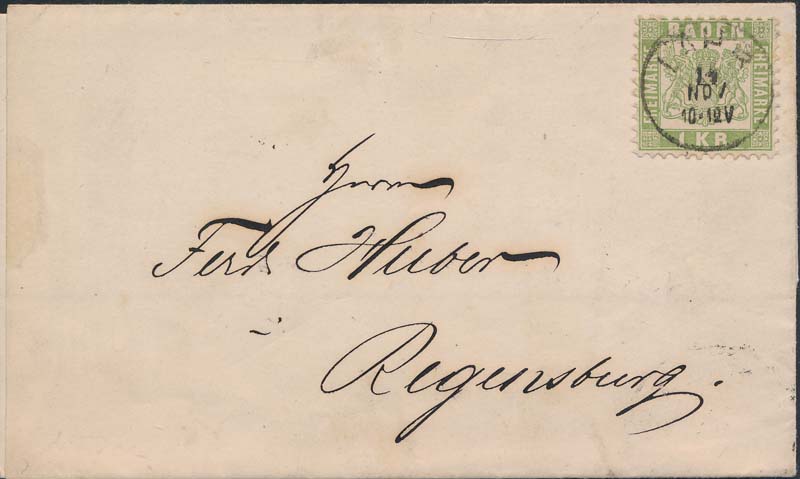 BADEN
FREIMARKE
FREIMARKE
1 KR.
14
NOV
10-12V
Herrn
Ferd. Huber
in
Regensburg.